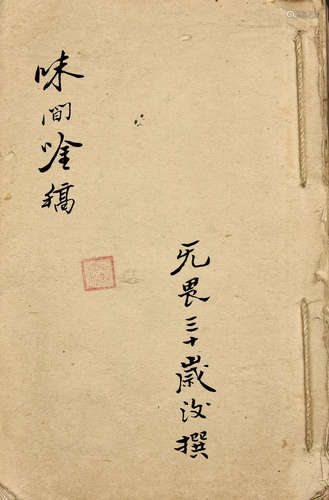 味間唫稿
无畏三十歲後撰